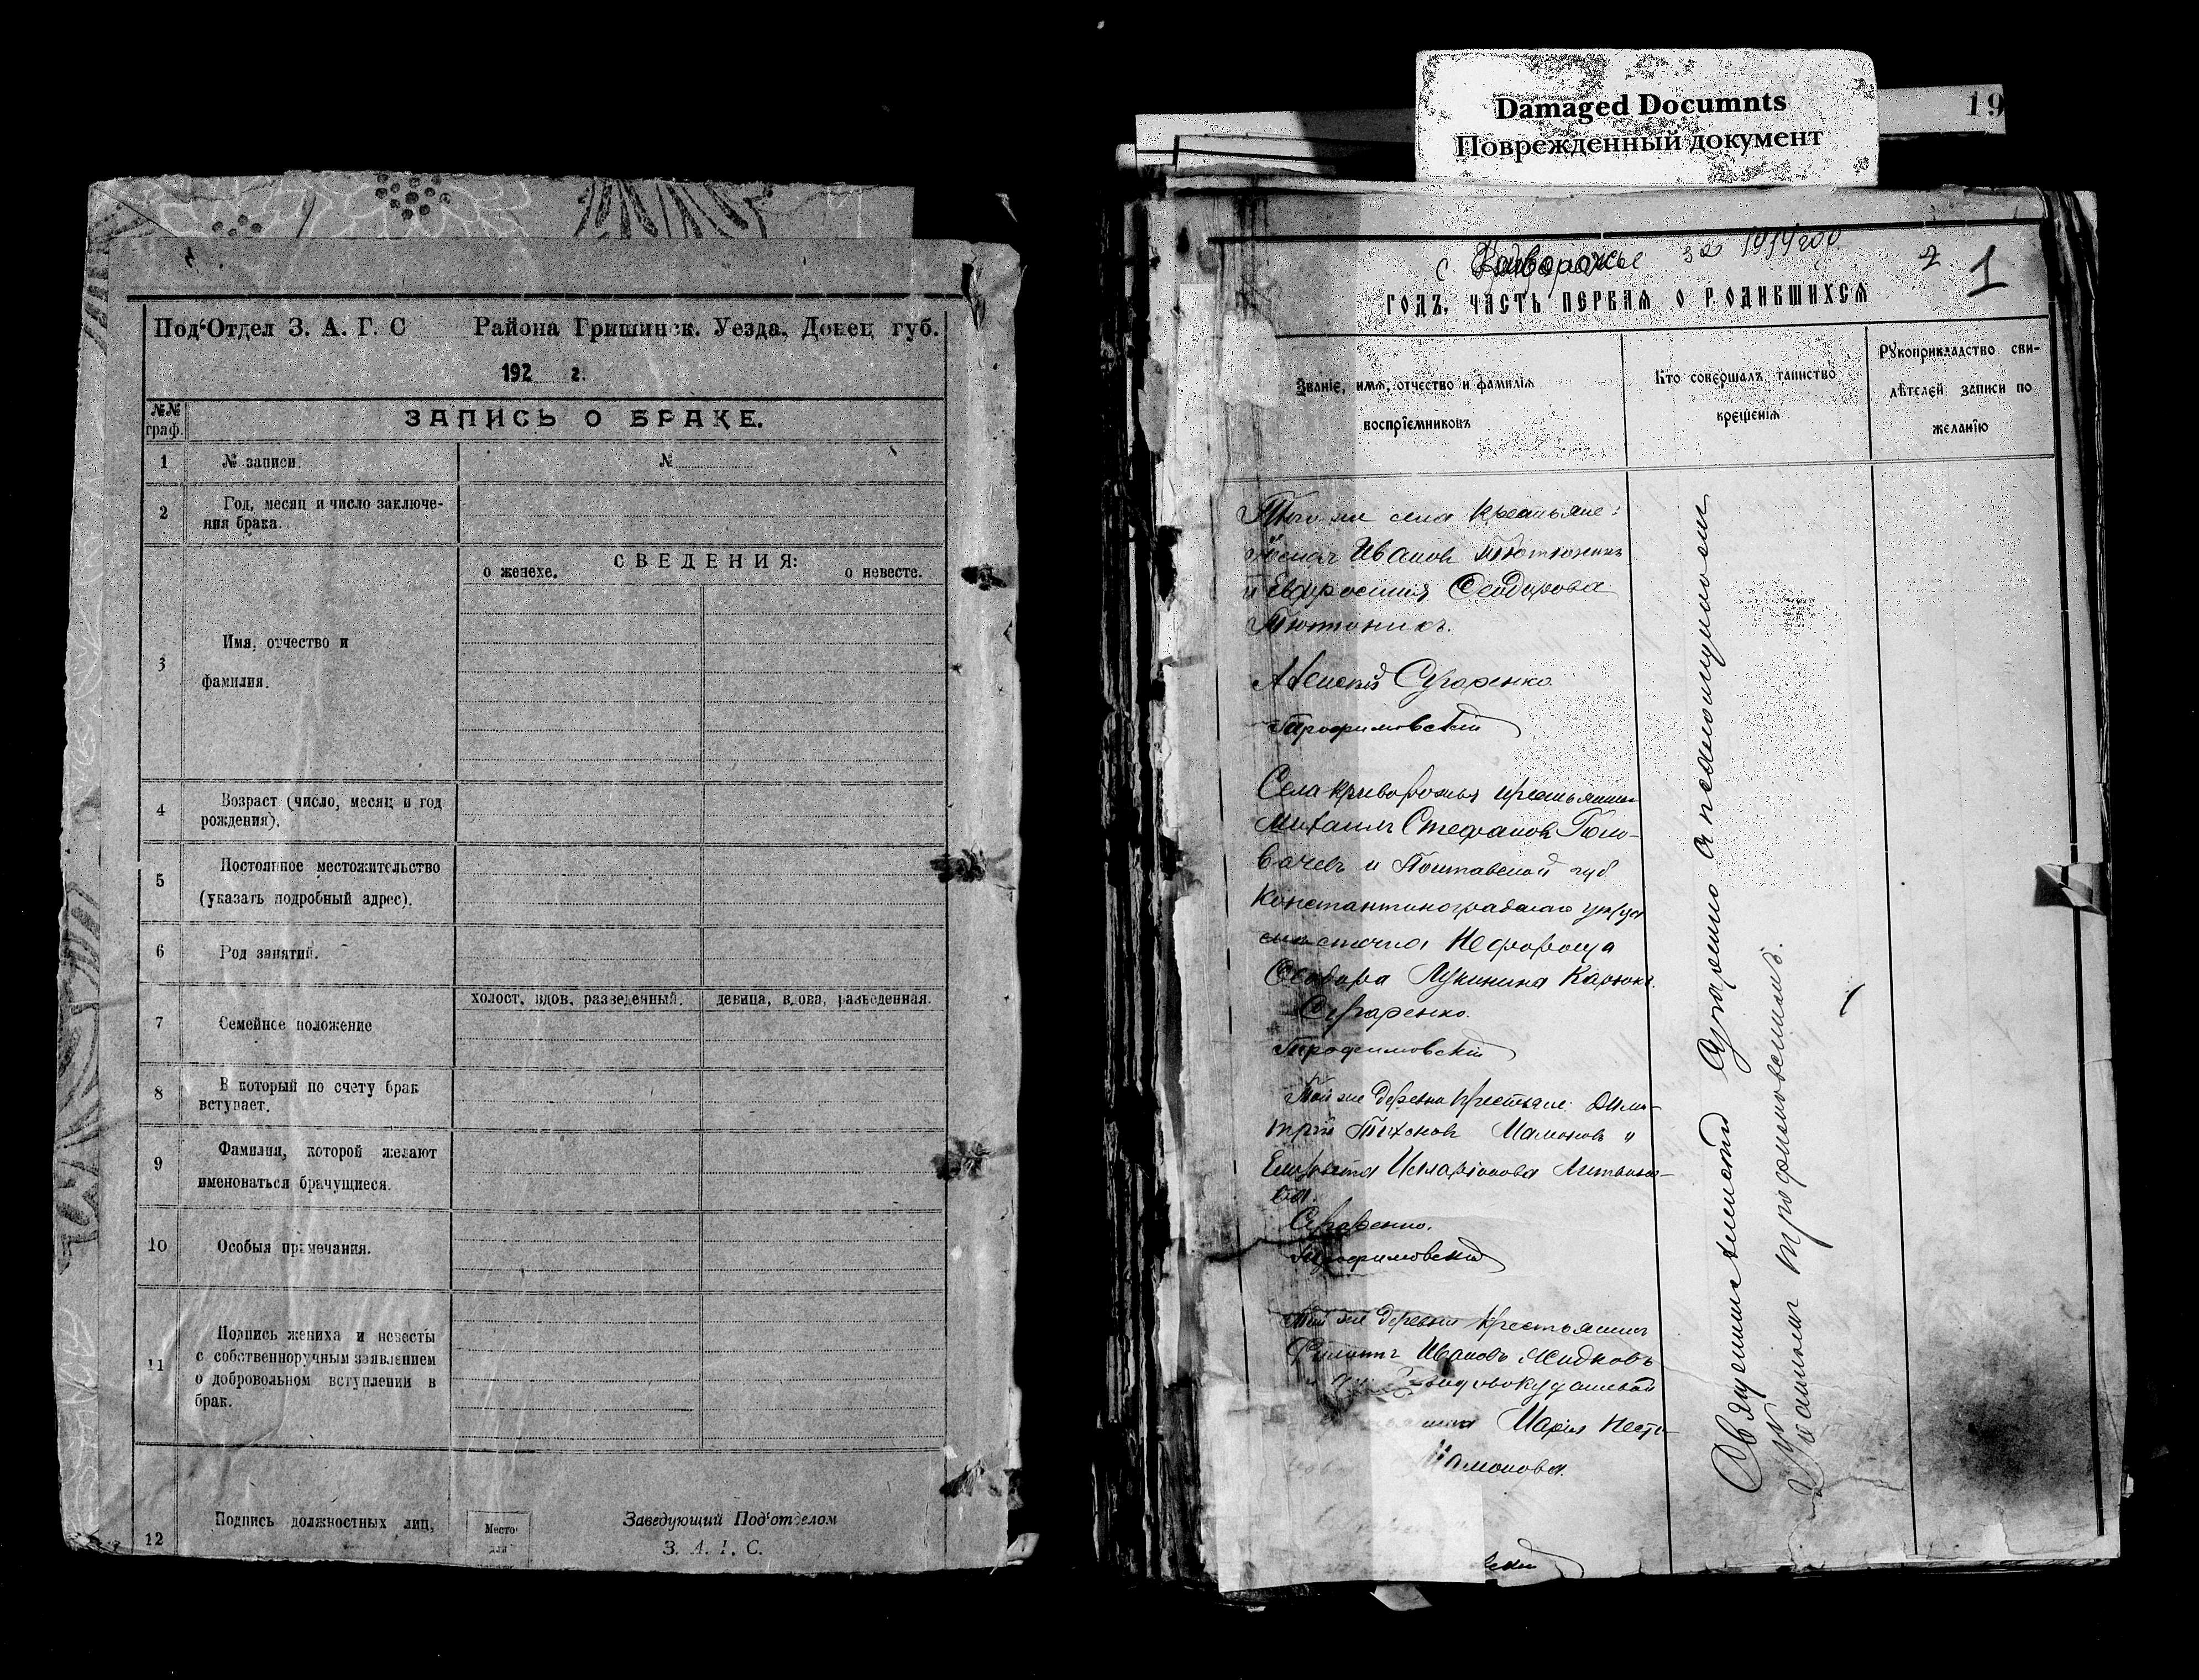 Damaged Documnts
Поврежденный документ
19
Под‘Отдел З. А. Г. С Района Гришинск. Уезда, Донец губ.
192 г.
№№ граф.
ЗАПИСЬ О БРАКЕ.
1 № записи. №
2 Год, месяц и число заключе-
ния брака.
СВЕДЕНИЯ:
о женехе. о невесте.
3 Имя, отчество и
фамилия.
4 Возраст (число, месяц и год
рождения).
5 Постоянное местожительство
(указать подробный адрес).
6 Род занятий.
7 Семейное положение
холост, вдов, разведенный. девица, вдова, разведенная.
8 В который по счету брак
вступает.
9 Фамилия, которой желают
именоваться брачущиеся.
10 Особыя примечания.
11 Подпись жениха и невесты
с собственноручным заявлением
о добровольном вступлении в
брак.
12 Подпись должностных лиц,
Место
Заведующий Под‘отделом
З. А. Г. С.
с Криворожье за 1919 год.
1
ГОДЪ, ЧАСТЬ ПЕРВАЯ О РОДИВШИХСЯ
Званіе, имя, отчество и фамилія
воспріемниковъ
Кто совершалъ таинство
крещенія
Рукоприкладство сви-
дѣтелей записи по
желанію
Того-же села крестьяне:
Иванов Тютюникъ
и Евфросинія Ѳеодорова
Тютюникъ.
Алексій Сухаренко.
Трофимовскій
Села Криворожья крестьянинъ
Михаилъ Стефанов Голо-
вачевъ и Полтавской губ
Константиноградскаго уѣзда
местечка Нефороща
Ѳеодора Лукинина
Сухаренко.
Трофимовскій
Той же деревни крестьяне: Дими-
трій Тихонов Мамонов и
Елисавета Иларіонова Литвино-
ва.
Сухаренко.
Трофимовскій
Той же деревни крестьянинъ
Филиппъ Ивановъ Жидковъ
Марія
Мамонова.
Священник Алексій Сухаренко с псаломщиком
Трофимовскимъ.